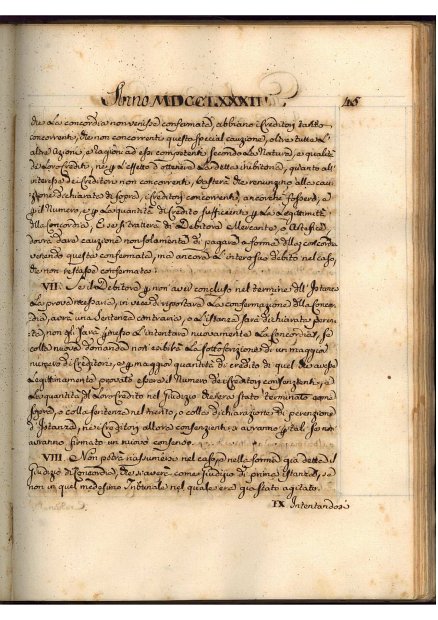 Anno MDCCLXXXII. 45
che La concordia non venisse confermata, abbiano i Creditori tanto
concorrenti, che non concorrenti questa special cauzione, oltre tutte Le
altre Azioni, e ragioni ad essi competenti secondo La Natura, e qualità
di Loro Crediti, ne p L'effetto d'ottenere La detta inibitoria, quanto all'
interesse dei Creditori non concorrenti, basterà che renunzino alla cau-
zione dichiarata di sopra, i Creditori concorrenti, ancorche fossero, e
p il Numero, e p La quantità di Credito sufficienti p La Legittimità
della Concordia, E se si tratterà di Debitore Mercante, o Artefice,
dovrà dare cauzione non solamente di pagare a forma della concordia
venendo questa confermata, ma ancora L'intero suo debito nel caso,
che non restasse confermata:
VII. Se il Debitore p non aver concluso nel termine dell' Istanza
La prova necessaria, in vece di riportare La confermazione della Concor-
dia, avrà una Sentenza contraria, o L'Istanza sarà dichiarata peren-
ta, non gli sarà permesso L'intentare nuovamente La Concordia, se
colla nuova domanda non esibirà La sottoscrizione di un maggior
numero di Creditori, o p maggior quantità di credito di quel che avesse
Legittimamente provato essere il Numero dei Creditori consenzienti, e
La quantità del Loro Credito nel Giudizio che era stato terminato come
sopra, o colla sentenza nel merito, o colla dichiarazione di perenzione
d'Istanza, ne i Creditori allora consenzienti s'avranno p tali se non
avranno firmato un nuovo consenso.
VIII. Non potrà riassumersi nel caso, e nella forma già detta il
Giudizio di Concordia, che s'averà come Giudizio di prima Istanza, se
non in quel medesimo Tribunale nel quale era già stato agitato.
IX Intentandosi